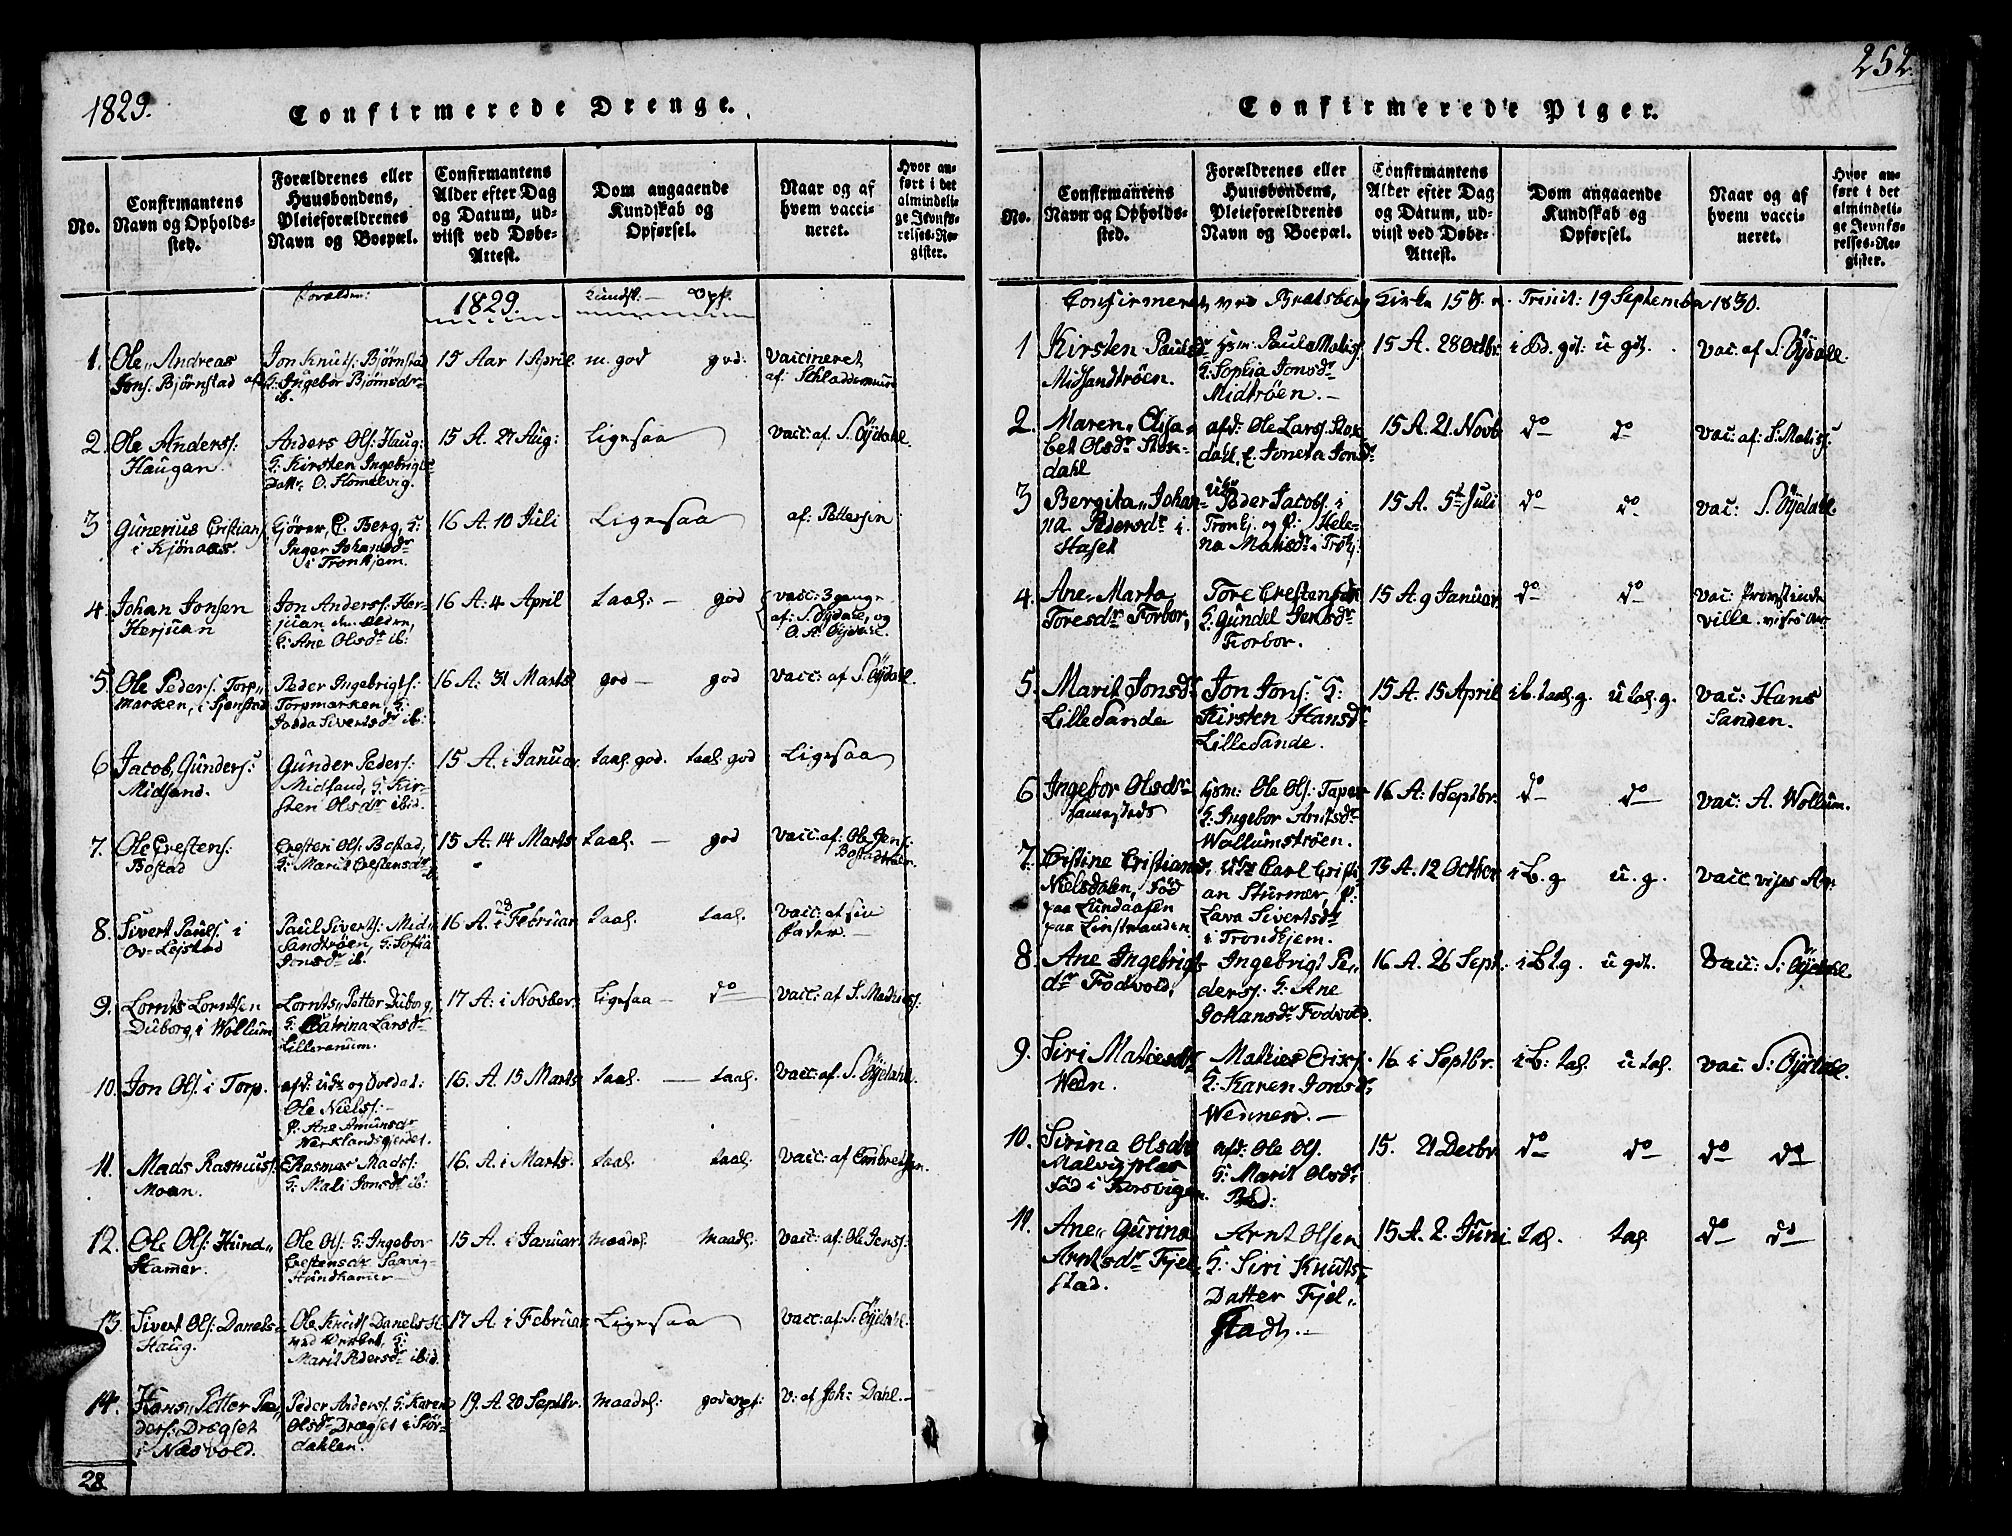 252.
1829.
Confirmerede Drenge.
No.
Confirmantens
Navn og Opholds-
sted.
Forældrenes eller
Huusbondens,
Pleieforældrenes
Navn og Boepæl.
Confirmantens
Alder efter Dag
og Datum, ud-
viist ved Døbe-
Attest.
Dom angaaende
Kundskab og
Opførsel.
Naar og af
hvem vacci-
neret.
Hvor an-
ført i det
almindeli-
ge Jevnfø-
relses-Re-
gister.
1829.
Kundsk. — Opf.
1. Ole Andreas
Jons: Bjørnstad
Jon Knuts: Bjørnstad
G: Ingebor Bjørnsdr
ib.
15 Aar 1 April
m. god god:
vaccineret
af:
2. Ole Anderss:
Haugan.
Anders Ols: Haug:
G: Kirsten Ingebrigts
Dattr, O. Homelvig.
15 A. 27 Aug:
Ligesaa
Vacc: af S. Öÿdahl.
3 Gunerius Cristians
i Kjønaas.
Gjører, C. Berg, G:
Inger Johansdr
i Tronhjem.
16 A. 10 Juli
Ligesaa
af: Pettersen
4. Johan Jonsen
Herjuan
Jon Anderss: Her-
juan
G: Ane Olsdr ib:
16 A: 4 April
taal: — god
vacc: 3 gange
af: S. Öÿdahl, og
O. A. Öÿdahl.
5. Ole Peders: Torp-
marken,
Peder Ingebrigts:
Torpmarken, G:
Sivertsdr ib:
16 A: 31 Marts
god — god
vacc: af S. Öÿdahl.
6 Jacob Gunders:
Midsand.
Gunder Peders:
Midsand, G: Kir-
sten Olsdr ibid.
15 A. i Januar.
taal. god. taal god
Ligesaa
7. Ole Crestens:
Bostad
Cresten Ols: Bostad,
G: Marit Crestensdr
15 A. 14 Marts
taal. — god
Vacc: af: Ole Jens:
8. Sivert Pauls: i
Ov- Leistad
Paul Siverts: Mid-
Sandtrøen, G: Sofia
Jonsdr ib.
16 A. 28 i Februar
taal. taal.
Vacc: af sin
Fader. —
9. Lornts Lorntsen
Duborg, i Wollum
Lornts Petter Duborg,
G: Catrina Larsdr
Lilleranum.
17 A: i Novber.
Ligesaa — do
Vacc: af S. Mathies:
10. Jon Ols: i Torp.
afd: udz og Soldat:
Ole Niels: —
P: Ane Amundsdr
Werklandsgjerdet.
16. A. 15 Marts
taal. — taal.
Vacc: af. S. Öÿdahl.
11. Mads Rasmuss:
Moan.
Rasmas Mads:
G: Mali Jonsdr ib:
16. A. i Marts.
taal. taal.
Vacc: af Embretsen.
12. Ole Ols: Hund-
Hamer.
Ole Ols: G: Ingebor
Crestensdr Saxvig-
Hundhamer
15 A. i Januar.
maadel. maadl.
Vacc: af: Ole Jens:
13. Sivert Ols: Danels-
Haug.
Ole Knuts: Danels H.
ved G:
Marit Pedersdr ibid.
17 A. i Februar
Ligesaa
Vacc: af S: Öÿdahl.
14. Hans Petter Pe-
ders: Drægset
i Næsvold.
Peder Anders: G: Karen
Olsdr Drægset i Stør-
dahlen.
19. A. 20 Septbr.
maadel: god opf:
V: af Joh: Dahl. —
28
Confirmerede Piger.
No.
Confirmantens
Navn og Opholds-
sted.
Forældrenes eller
Huusbondens,
Pleieforældrenes
Navn og Boepæl.
Confirmantens
Alder efter Dag
og Datum, ud-
viist ved Døbe-
Attest.
Dom angaaende
Kundskab og
Opførsel.
Naar og af
hvem vacci-
neret.
Hvor an-
ført i det
almindeli-
ge Jevnfø-
relses-Re-
gister.
Confirmeret ved Bratsberg Kirke 15 S. e. Trinit: 19 September 1830.
1 Kirsten Paulsdr
Midsandtrøen.
Hsm: Paul Matis:
G: Sophia Jonsdr
Midtrøen. —
15 A. 28 Octbr.
i Bd. gdt: u gdt.
Vac. af S. Öÿdahl.
2. Maren Elisa-
bet Olsdr Stok-
dahl
afd: Ole Lars: Stok-
dahl, E. Joneta Jonsdr
15 A. 21. Novb
do do
Vac: af: S. Matis:
3 Bergita Johan-
na Pedersdr i
Haset
udz Peder Jacobs: i
Tronhj. og P: Hele-
na Matisdr i Trohj:
15 A. 5te Juli
do do
vac: S. Öÿdahl.
4. Ane Marta
Toresdr Forbor,
Tore Crestensen
G: Gundel Jensdr
Forbor.
15 A. 9 Januar.
do do
vac:
5. Marit Jonsdr
LilleSande
Jon Jons: G:
Kirsten Hansdr
LilleSande.
15 A. 15 April
i B. taal. g. u tal. g.
vac: Hans
Sanden.
6 Ingebor Olsdr
Hsm: Ole Ols: Taper
G: Ingebor Arntsdr
Wollumstrøen.
16 A: 1 Septbr.
do do
vac: A. Wollum.
7. Cristine Cristiansd.
Nielsdalen, Född
paa Lundaasen
paa Linstranden.
udz Carl Cristi-
an Sturmer, P:
Lava Sivertsdr
i Trondhjem.
15 A. 12 Octber
i B. g u. g.
vacc.
8. Ane Ingebrigt-
dr Fodvold,
Ingebrigt Pe-
ders: G: Ane
Johansdr Fodvold.
16 A. 26 Sept.
i B t.g. u gdt.
Vacc: S: Öÿdahl.
9. Siri Matiesdr
Ween.
Mathies Erixs:
G: Karen Jonsdr,
Wennen. —
16 i Septbr.
i B: tal. u tal.
Vac. S: Öÿdahl.
10. Sirina Olsdr
Malvigplas
Föd i Korsvigen
afd: Ole Ols.
G: Marit Olsdr
15. 21 Decbr
do do
do do
11. Ane Gurina
Arntsdr Fjel-
stad.
Arnt Olsen
G: Siri Knuts-
Datter Fjel-
stad. —
15 A. 2. Juni
tal. tal
do do